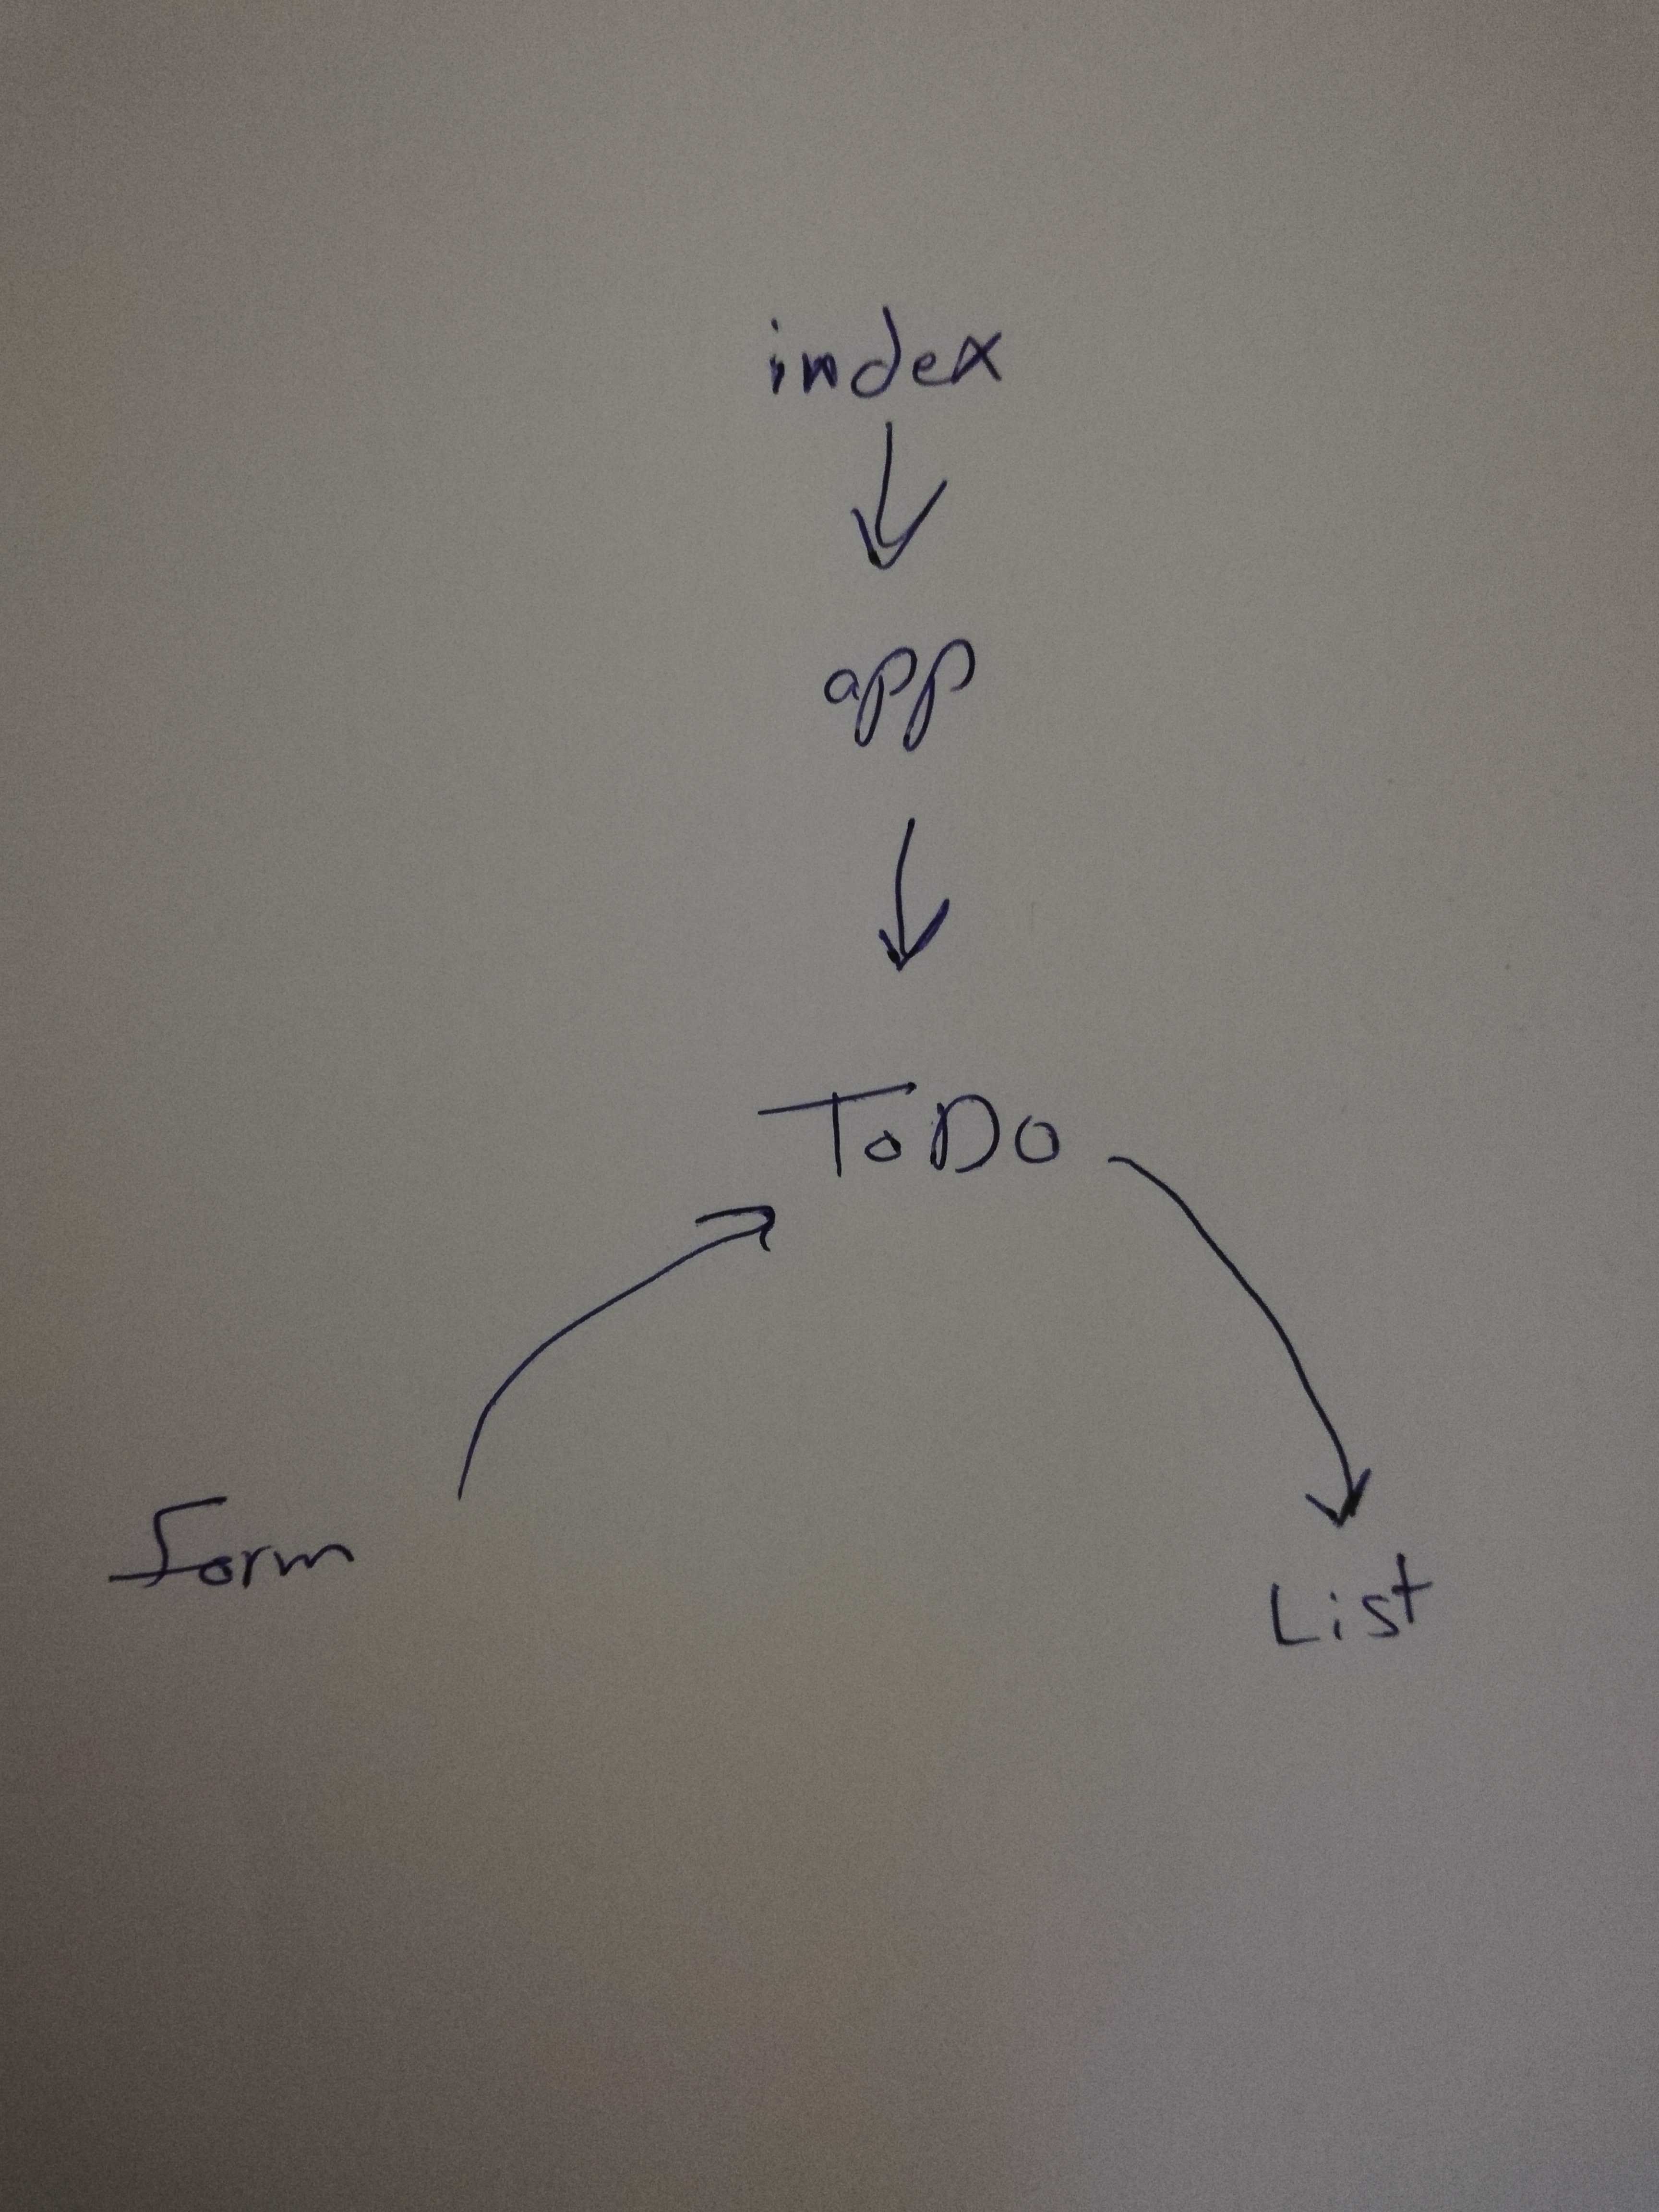 index
app
ToDo
form
List